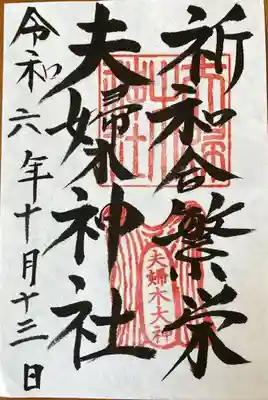 祈和合繁栄
夫婦木神社
令和六年十月十三日
夫婦木大神